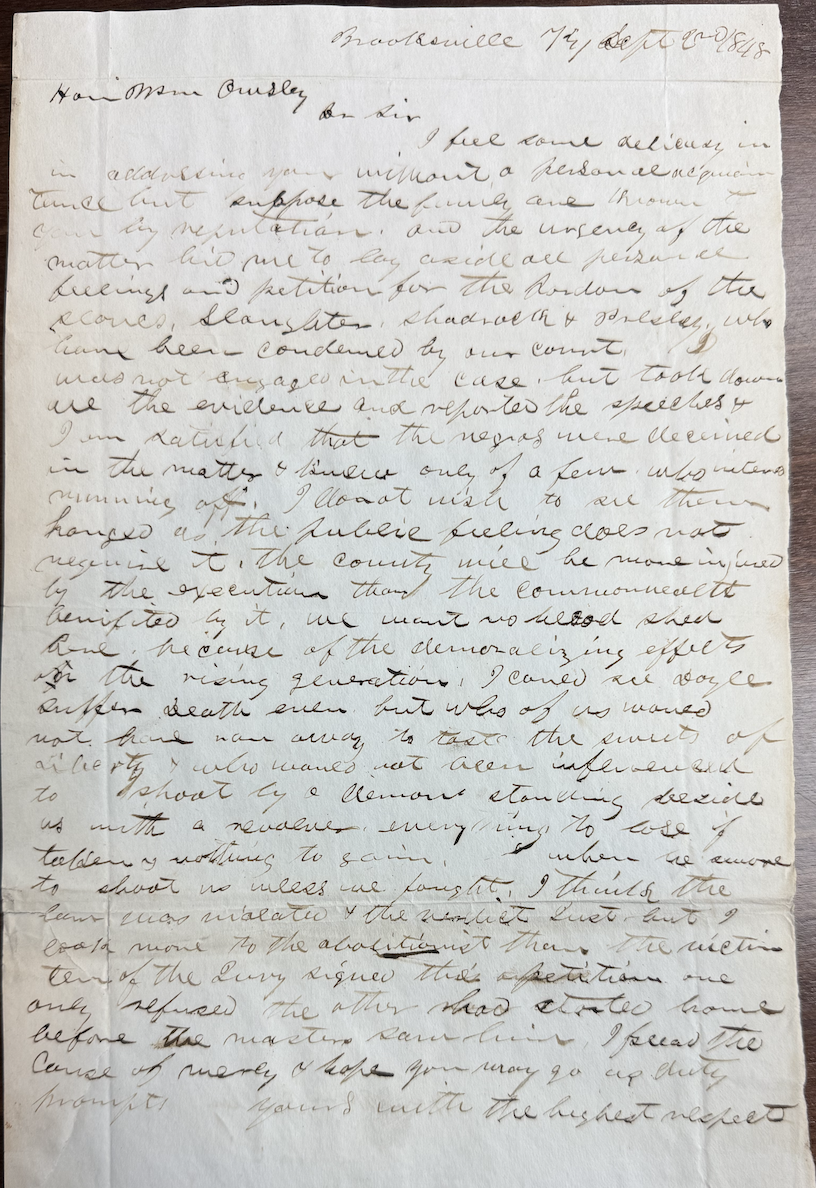 Brooksville Ky Sept 2nd 1848
Hon Wm Owsley
Dr Sir
I feel some delicacy in
in addressing you without a personal acquain
tance but suppose the family are known to
you by reputation. and the urgency of the
matter bid me to lay aside all personal
feelings and petition for the Pardon of the
slaves, Slaughter, Shadrack & Presley, who
have been condemed by our court. I
was not engaged in the case. but took down
all the evidence and reported the speeches &
I am satisfied that the negros were deceived
in the matter & knew only of a few who intend
running off. I do not wish to see them
hanged as the public feeling does not
require it. the county will be more injured
by the execution than the commonwealth
benifited by it, we want no blood shed
here. because of the demoralizing effects
on the rising generation. I could see Doyle
suffer death even but who of us would
not have ran away to taste the sweets of
Liberty & who would not been influenced
to shoot by a demon standing beside
us with a revolver. everything to lose if
taken & nothing to gain. when he swore
to shoot us unless we fought. I think the
law was violated & the verdict Just. but I
look more to the abolitionist than the victim
ten of the Jury signed the petition one
only refused the other had started home
before the masters saw him. I plead the
cause of mercy & hope you may go as duty
prompts yours with the highest respect